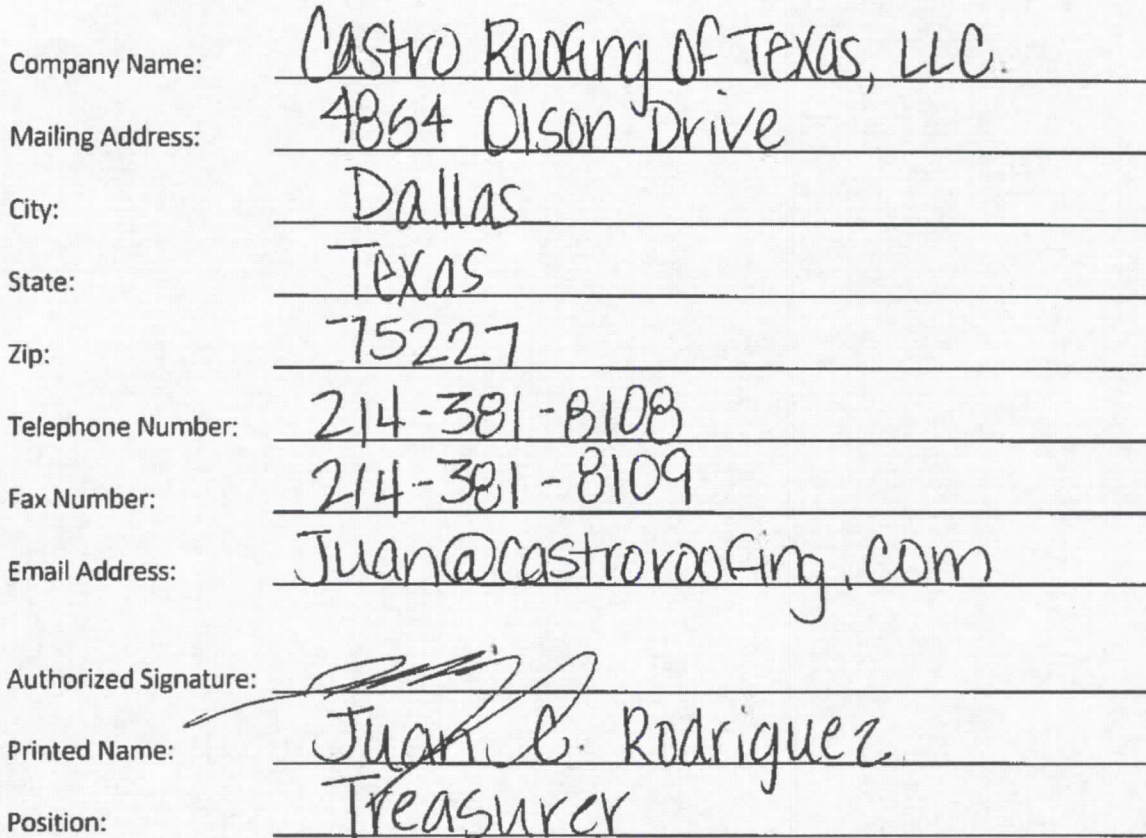 Company Name: Castro Roofing of Texas, LLC.
Mailing Address: 4854 Olson Drive
City: Dallas
State: Texas
Zip: 75227
Telephone Number: 214-381-8108
Fax Number: 214-381-8109
Email Address: Juan@castroroofing.com
Authorized Signature:
Printed Name: Juan C. Rodriguez
Position: Treasurer